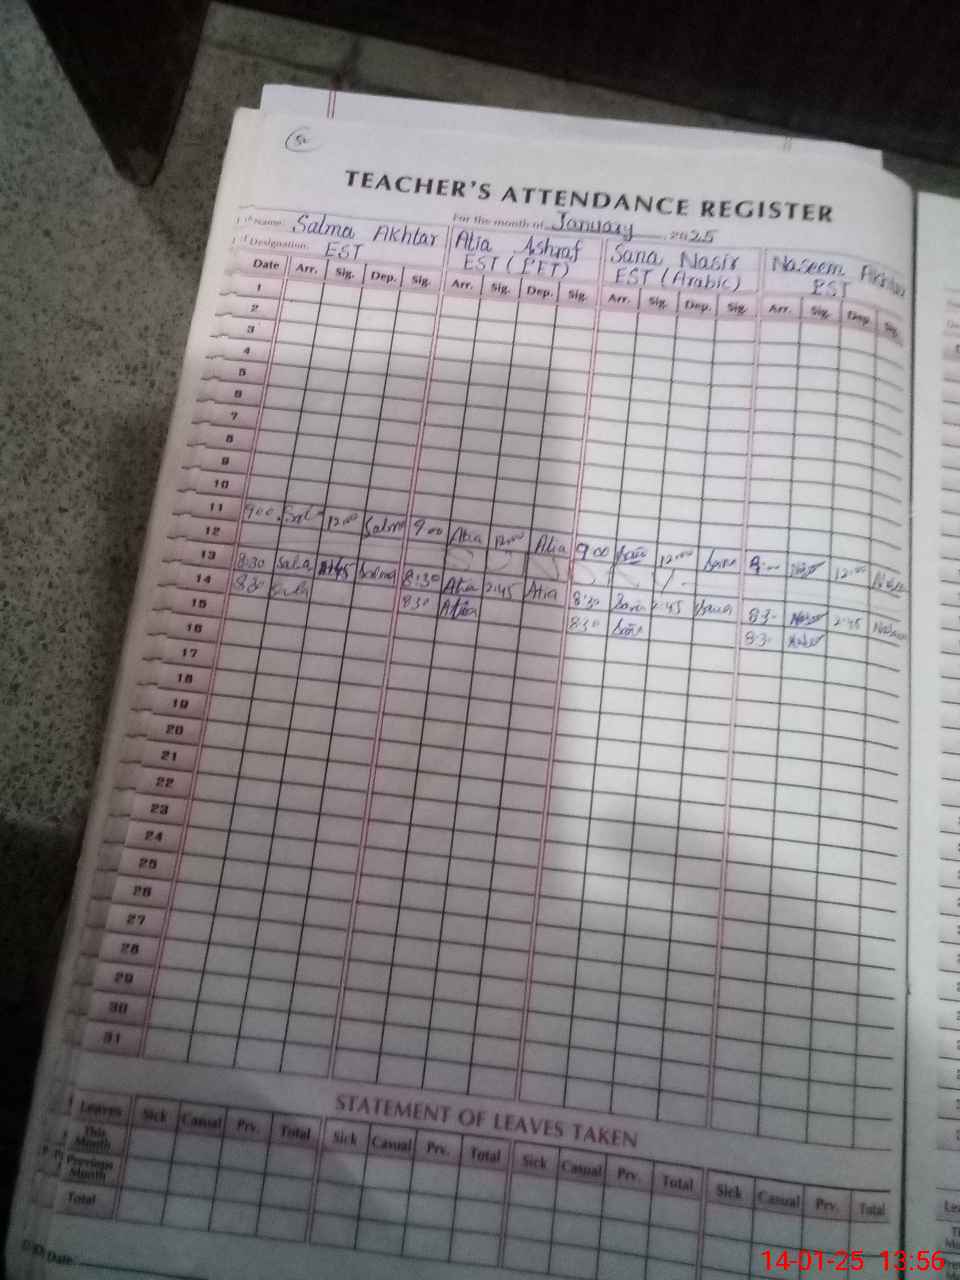 52
TEACHER'S ATTENDANCE REGISTER
For the month of January 2025
Name: Salma Akhtar Atia Ashraf Sana Nasir Naseem Akhtar
Designation: EST EST (PET) EST (Arabic) EST
Date Arr. Sig. Dep. Sig. Arr. Sig. Dep. Sig. Arr. Sig. Dep. Sig. Arr. Sig. Dep. Sig.
1
2
3
4
5
6
7
8
9
10
11 9 00 12 00 Salma 9 00 Atia 12 00 Atia 9 00 12 00 12 00
12
13 8:30 Salma 8:30 Atia 2:45 Atia 8:30 2:45 Sana 83- 2:45
14 8:30 8:30 Atia 8:30 83-
15
16
17
18
19
20
21
22
23
24
25
26
27
28
29
30
31
STATEMENT OF LEAVES TAKEN
Leaves Sick Casual Prv. Total Sick Casual Prv. Total Sick Casual Prv. Total Sick Casual Prv. Total
This Month
Previous Month
Total
Date:
14-01-25 13:56